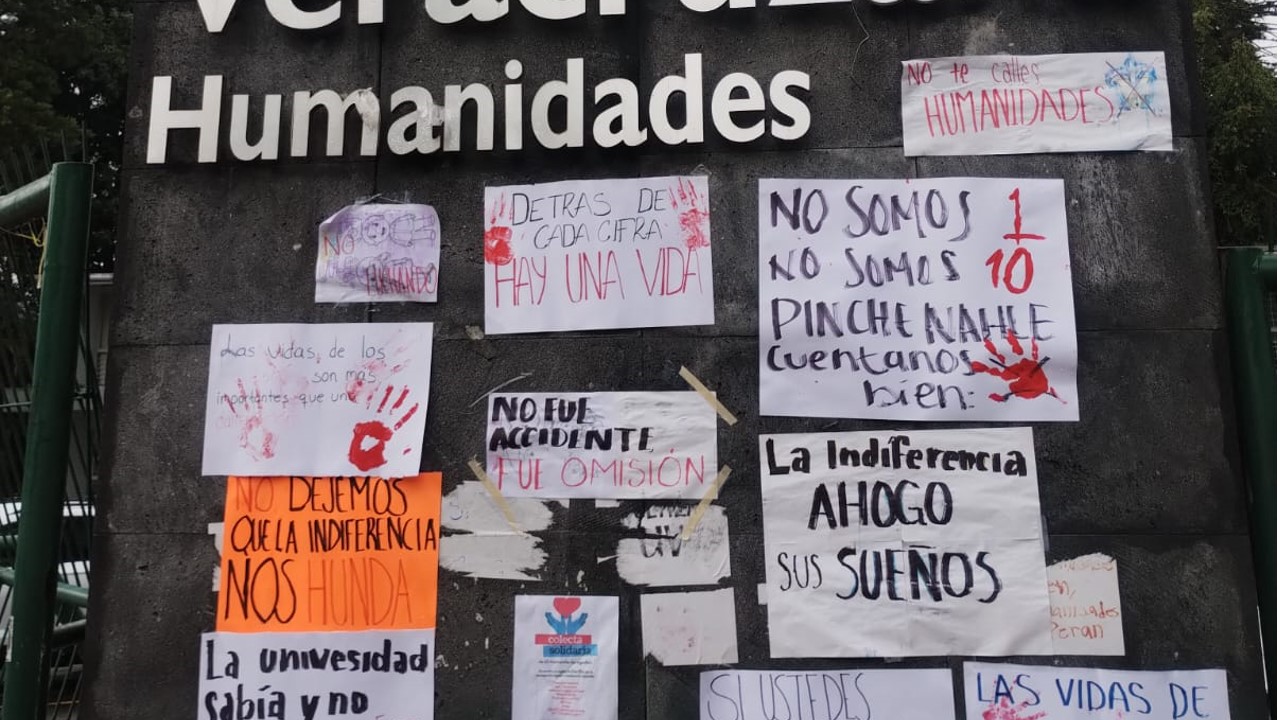 Veracruzana
Humanidades
NO te calles
HUMANIDADES
DETRAS DE
CADA CIFRA
HAY UNA VIDA
NO SOMOS 1
NO SOMOS 10
PINCHE NAHLE
Cuentanos
bien:
NO
HUMANDO
Las vidas de los
son mas
importantes que una
NO FUE
ACCIDENTE
FUE OMISIÓN
La Indiferencia
AHOGO
SUS SUEÑOS
NO DEJEMOS
QUE LA INDIFERENCIA
NOS HUNDA
colecta
solidaria
Peran
La univesidad
sabía y no
SI USTEDES
LAS VIDAS DE